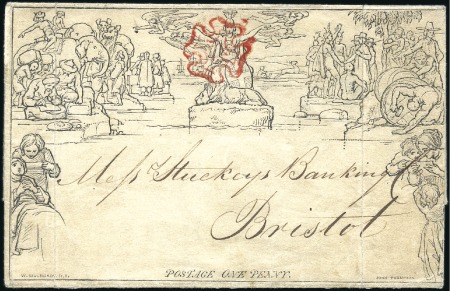 Messrs Stuckeys Banking Co
Bristol
W. MULREADY, R.A.
JOHN THOMPSON
POSTAGE ONE PENNY.